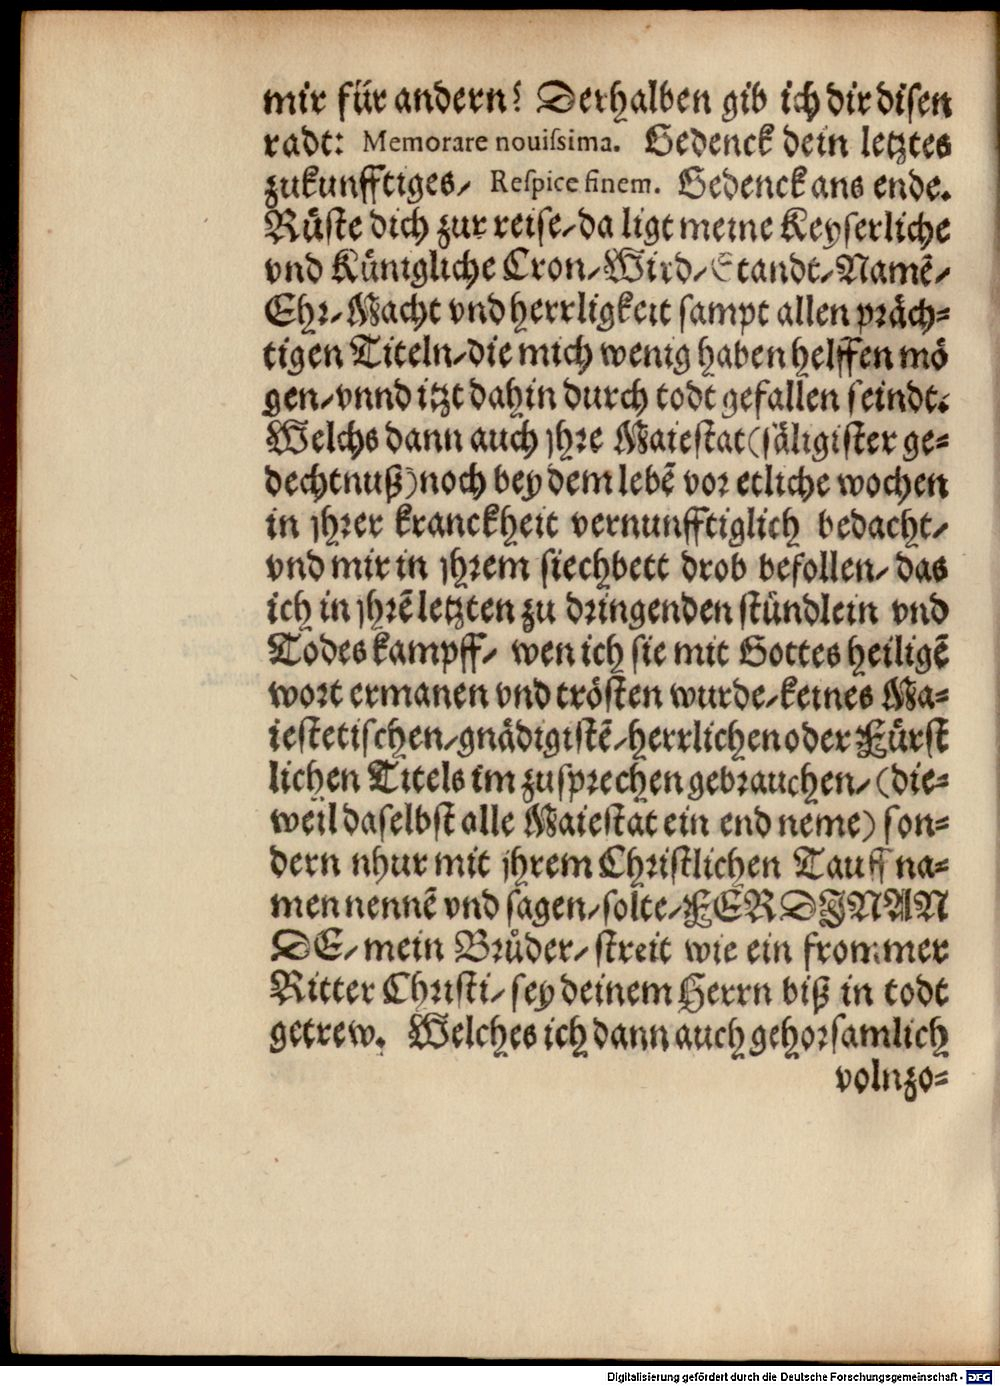 mir für andern? Derhalben gib ich dir disen
radt: Memorare nouissima. Gedenck dein letztes
zukunfftiges/ Respice finem. Gedenck ans ende.
Rüste dich zur reise/da ligt meine Keyserliche
vnd Künigliche Cron/Wird/Standt/Namē/
Ehr/Macht vnd herrligkeit sampt allen präch-
tigen Titeln/die mich wenig haben helffen mö
gen/vnnd itzt dahin durch todt gefallen seindt.
Welchs dann auch jhre Maiestat (säligister ge-
dechtnuß) noch bey dem lebē vor etliche wochen
in jhrer kranckheit vernunfftiglich bedacht/
vnd mir in jhrem siechbett drob befollen/das
ich in jhrē letzten zu dringenden stündlein vnd
Todes kampff/ wen ich sie mit Gottes heiligē
wort ermanen vnd trösten wurde/keines Ma-
iestetischen/gnädigistē/herrlichen oder Fürst
lichen Titels im zusprechen gebrauchen/(die-
weil daselbst alle Maiestat ein end neme) son-
dern nhur mit jhrem Christlichen Tauff na-
men nennē vnd sagen/solte/FERDINAN
DE/mein Brůder/streit wie ein frommer
Ritter Christi/sey deinem Herrn biß in todt
getrew. Welches ich dann auch gehorsamlich
volnzo-
Digitalisierung gefördert durch die Deutsche Forschungsgemeinschaft - DFG